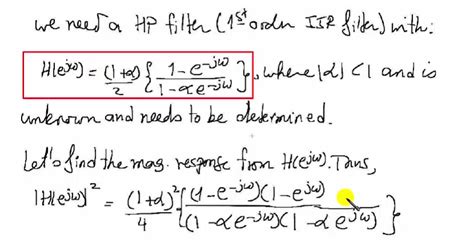 we need a HP filter (1st order IIR filter) with:
H(e^jω) = (1+α)/2 { (1 - e^-jω)/(1 - αe^-jω) }, where |α| < 1 and is
unknown and needs to be determined.
Let's find the mag. response from H(e^jω). Thus,
|H(e^jω)|^2 = (1+α)^2/4 { (1 - e^-jω)(1 - e^jω)/(1 - αe^-jω)(1 - αe^jω) }